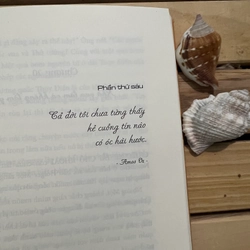 Phần thứ sáu
Cả đời tôi chưa từng thấy
kẻ cuồng tín nào
có óc hài hước.
- Amos Oz